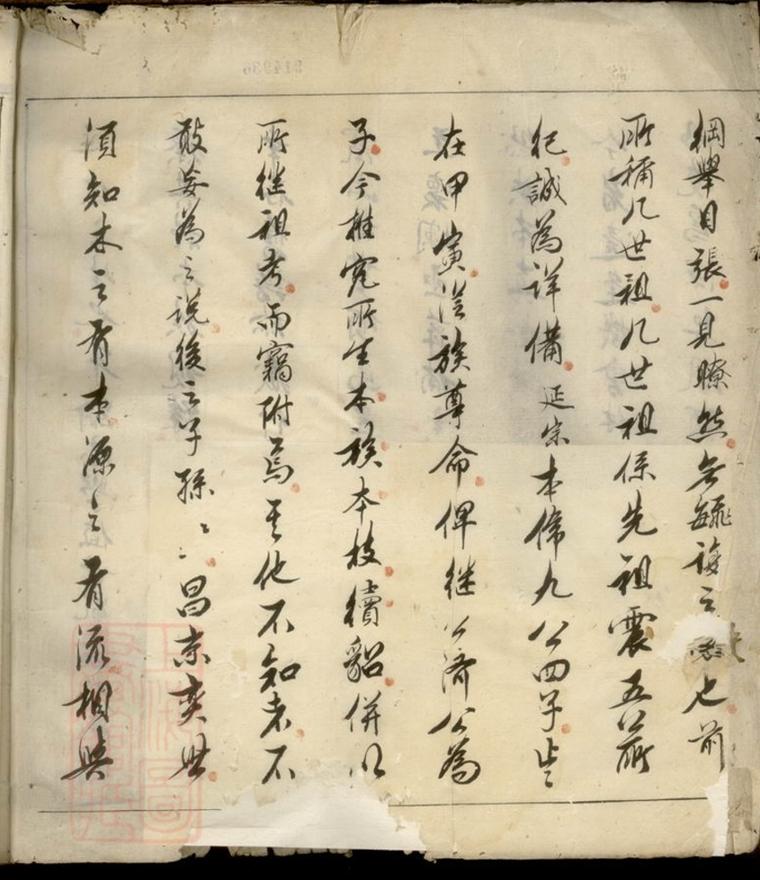 綱舉目張一見瞭然無毓誨之也前
所稱几世祖几世祖係先祖震五公所
纪誠為详備延宗本係九公四子片
在甲寅從族尊命俾继公济公為
子今推究所生本族本枝續貂併以
所继祖考而竊附焉其他不知者不
敢妄為之说後之子孫〻昌赤奕世
須知木之有本源之有流相與